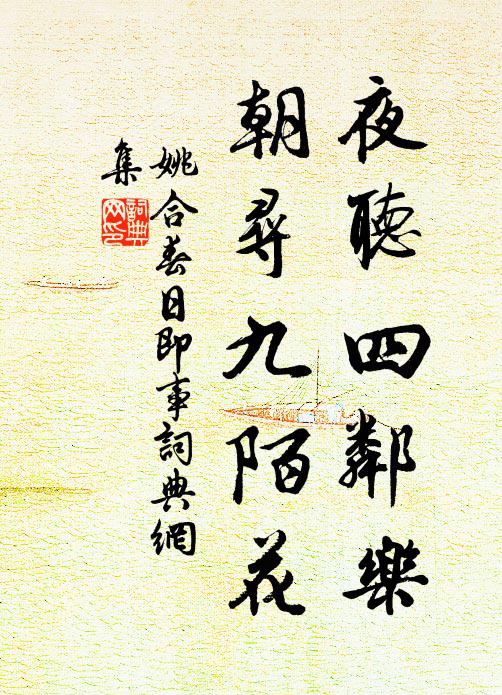 夜聽四鄰樂
朝尋九陌花
姚合春日即事詞典網
集
詞典網印